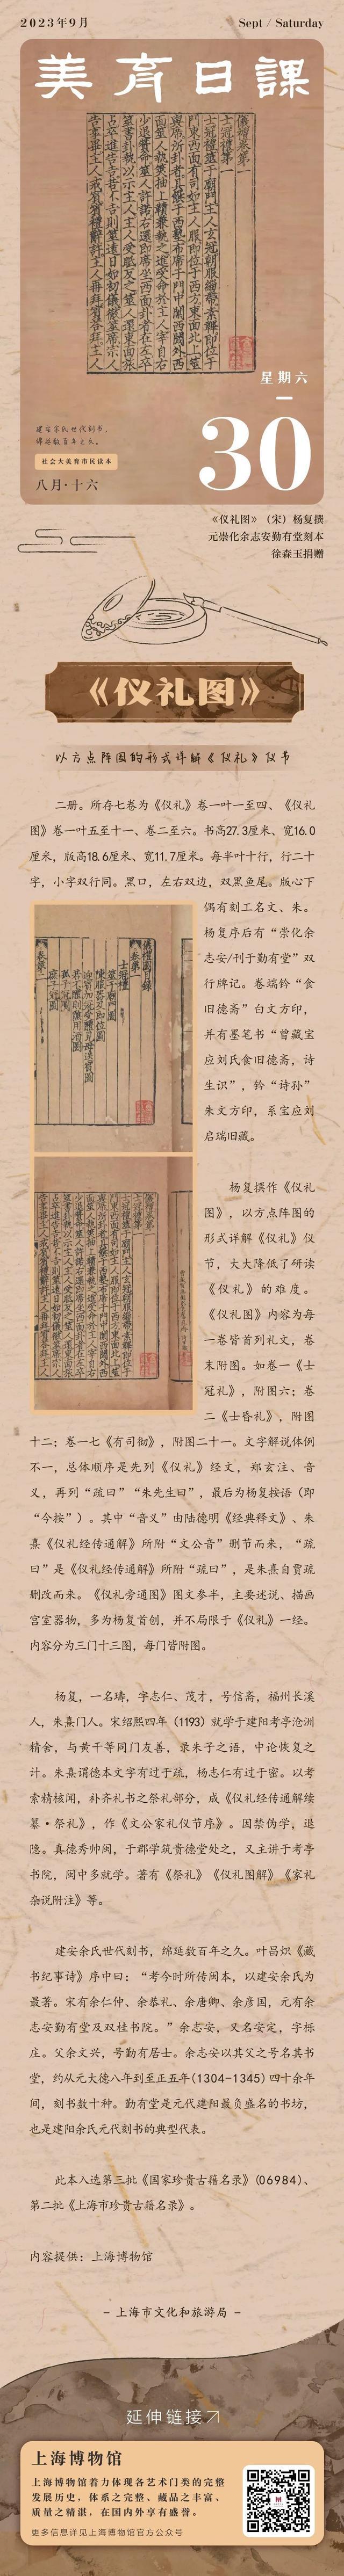 2023年9月
Sept / Saturday
美育日課
星期六
30
建安余氏世代刻书，
绵延数百年之久。
社会大美育市民读本
八月·十六
《仪礼图》（宋）杨复撰
元崇化余志安勤有堂刻本
徐森玉捐赠
《仪礼图》
以方点阵图的形式详解《仪礼》仪节
二册。所存七卷为《仪礼》卷一叶一至四、《仪礼
图》卷一叶五至十一、卷二至六。书高27.3厘米、宽16.0
厘米，版高18.6厘米、宽11.7厘米。每半叶十行，行二十
字，小字双行同。黑口，左右双边，双黑鱼尾。版心下
偶有刻工名文、朱。
杨复序后有“崇化余
志安/刊于勤有堂”双
行牌记。卷端钤“食
旧德斋”白文方印，
并有墨笔书“曾藏宝
应刘氏食旧德斋，诗
生识”，钤“诗孙”
朱文方印，系宝应刘
启瑞旧藏。
杨复撰作《仪礼
图》，以方点阵图的
形式详解《仪礼》仪
节，大大降低了研读
《仪礼》的难度。
《仪礼图》内容为每
一卷皆首列礼文，卷
末附图。如卷一《士
冠礼》，附图六；卷
二《士昏礼》，附图
十二；卷一七《有司彻》，附图二十一。文字解说体例
不一，总体顺序是先列《仪礼》经文，郑玄注、音
义，再列“疏曰”“朱先生曰”，最后为杨复按语（即
“今按”）。其中“音义”由陆德明《经典释文》、朱
熹《仪礼经传通解》所附“文公音”删节而来，“疏
曰”是《仪礼经传通解》所附“疏曰”，是朱熹自贾疏
删改而来。《仪礼旁通图》图文参半，主要述说、描画
宫室器物，多为杨复首创，并不局限于《仪礼》一经。
内容分为三门十三图，每门皆附图。
杨复，一名璹，字志仁、茂才，号信斋，福州长溪
人，朱熹门人。宋绍熙四年（1193）就学于建阳考亭沧洲
精舍，与黄干等同门友善，录朱子之语，中论恢复之
计。朱熹谓德本文字有过于疏，杨志仁有过于密。以考
索精核闻，补齐礼书之祭礼部分，成《仪礼经传通解续
纂·祭礼》，作《文公家礼仪节序》。因禁伪学，退
隐。真德秀帅闽，于郡学筑贵德堂处之，又主讲于考亭
书院，闽中多就学。著有《祭礼》《仪礼图解》《家礼
杂说附注》等。
建安余氏世代刻书，绵延数百年之久。叶昌炽《藏
书纪事诗》序中曰：“考今时所传闽本，以建安余氏为
最著。宋有余仁仲、余恭礼、余唐卿、余彦国，元有余
志安勤有堂及双桂书院。”余志安，又名安定，字栎
庄。父余文兴，号勤有居士。余志安以其父之号名其书
堂，约从元大德八年到至正五年（1304-1345）四十余年
间，刻书数十种。勤有堂是元代建阳最负盛名的书坊，
也是建阳余氏元代刻书的典型代表。
此本入选第三批《国家珍贵古籍名录》（06984）、
第二批《上海市珍贵古籍名录》。
内容提供：上海博物馆
– 上海市文化和旅游局 –
延伸链接
上海博物馆
上海博物馆着力体现各艺术门类的完整
发展历史，体系之完整、藏品之丰富、
质量之精湛，在国内外享有盛誉。
更多信息详见上海博物馆官方公众号